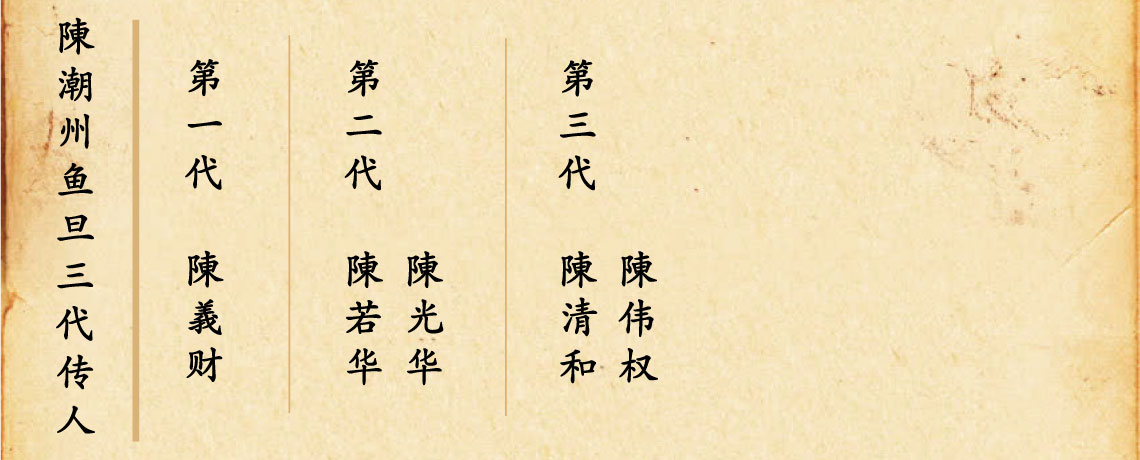 陳潮州鱼旦三代传人
第一代 陳義财
第二代 陳若华
陳光华
第三代 陳清和
陳伟权